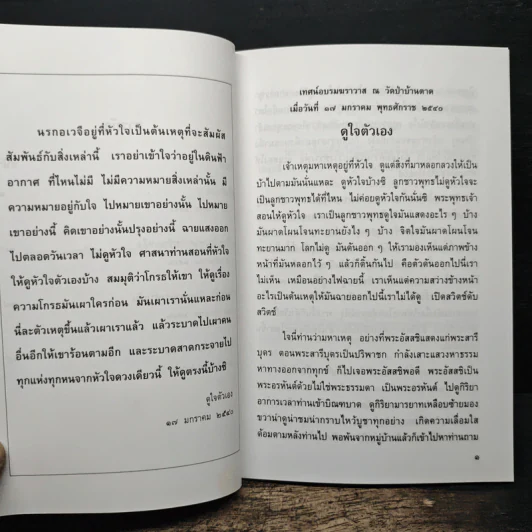 นรกอเวจีอยู่ที่หัวใจเป็นต้นเหตุที่จะสัมผัส
สัมพันธ์กับสิ่งเหล่านี้ เราอย่าเข้าใจว่าอยู่ในดินฟ้า
อากาศ ที่ไหนไม่มี ไม่มีความหมายสิ่งเหล่านั้น มี
ความหมายอยู่กับใจ ไปหมายเขาอย่างนั้น ไปหมาย
เขาอย่างนี้ คิดเขาอย่างนั้นปรุงอย่างนี้ ฉายแสงออก
ไปตลอดวันเวลา ไม่ดูหัวใจ ศาสนาท่านสอนที่หัวใจ
ให้ดูหัวใจตัวเองบ้าง สมมุติว่าโกรธให้เขา ให้ดูเรื่อง
ความโกรธมันเผาใครก่อน มันเผาเรานั่นแหละก่อน
นี่ละตัวเหตุขึ้นแล้วเผาเราแล้ว แล้วระบาดไปเผาคน
อื่นอีกให้เขาร้อนตามอีก และระบาดสาดกระจายไป
ทุกแห่งทุกหนจากหัวใจดวงเดียวนี้ ให้ดูตรงนี้บ้างซิ
ดูใจตัวเอง
๑๗ มกราคม ๒๕๔๐
เทศน์อบรมฆราวาส ณ วัดป่าบ้านตาด
เมื่อวันที่ ๑๗ มกราคม พุทธศักราช ๒๕๔๐
ดูใจตัวเอง
เจ้าเหตุมหาเหตุอยู่ที่หัวใจ ดูแต่สิ่งที่มาหลอกลวงให้เป็น
บ้าไปตามมันนั่นแหละ ดูหัวใจบ้างซิ ลูกชาวพุทธไม่ดูหัวใจจะ
เป็นลูกชาวพุทธได้ที่ไหน ไม่ค่อยดูหัวใจกันนั่นซิ พระพุทธเจ้า
สอนให้ดูหัวใจ เราเป็นลูกชาวพุทธดูใจมันแสดงอะไร ๆ บ้าง
มันผาดโผนโจนทะยานยังไง ๆ บ้าง จิตใจมันผาดโผนโจน
ทะยานมาก โลกไม่ดู มันดันออก ๆ ให้เรามองเห็นแต่ภาพข้าง
หน้าที่มันหลอกไว้ ๆ แล้วก็ตื่นกันไป คือตัวดันออกไปนี้เรา
ไม่เห็น เหมือนอย่างไฟฉายนี้ เราเห็นแต่ความสว่างข้างหน้า
อะไรเป็นต้นเหตุให้มันฉายออกไปนี้เราไม่ได้ดู เปิดสวิตช์ดับ
สวิตช์
ใจนี้ท่านว่ามหาเหตุ อย่างที่พระอัสสชิแสดงแก่พระสารี
บุตร ตอนพระสารีบุตรเป็นปริพาชก กำลังเสาะแสวงหาธรรม
หาทางออกจากทุกข์ ก็ไปเจอพระอัสสชิพอดี พระอัสสชิเป็น
พระอรหันต์ด้วยไม่ใช่พระธรรมดา เป็นพระอรหันต์ ไปดูกิริยา
อาการเวลาท่านเข้าบิณฑบาต ดูกิริยามารยาทเหลือบซ้ายมอง
ขวาน่าดูน่าชมน่ากราบไหว้บูชาทุกอย่าง เกิดความเลื่อมใส
ด้อมตามหลังท่านไป พอพ้นจากหมู่บ้านแล้วก็เข้าไปหาท่านถาม
๑